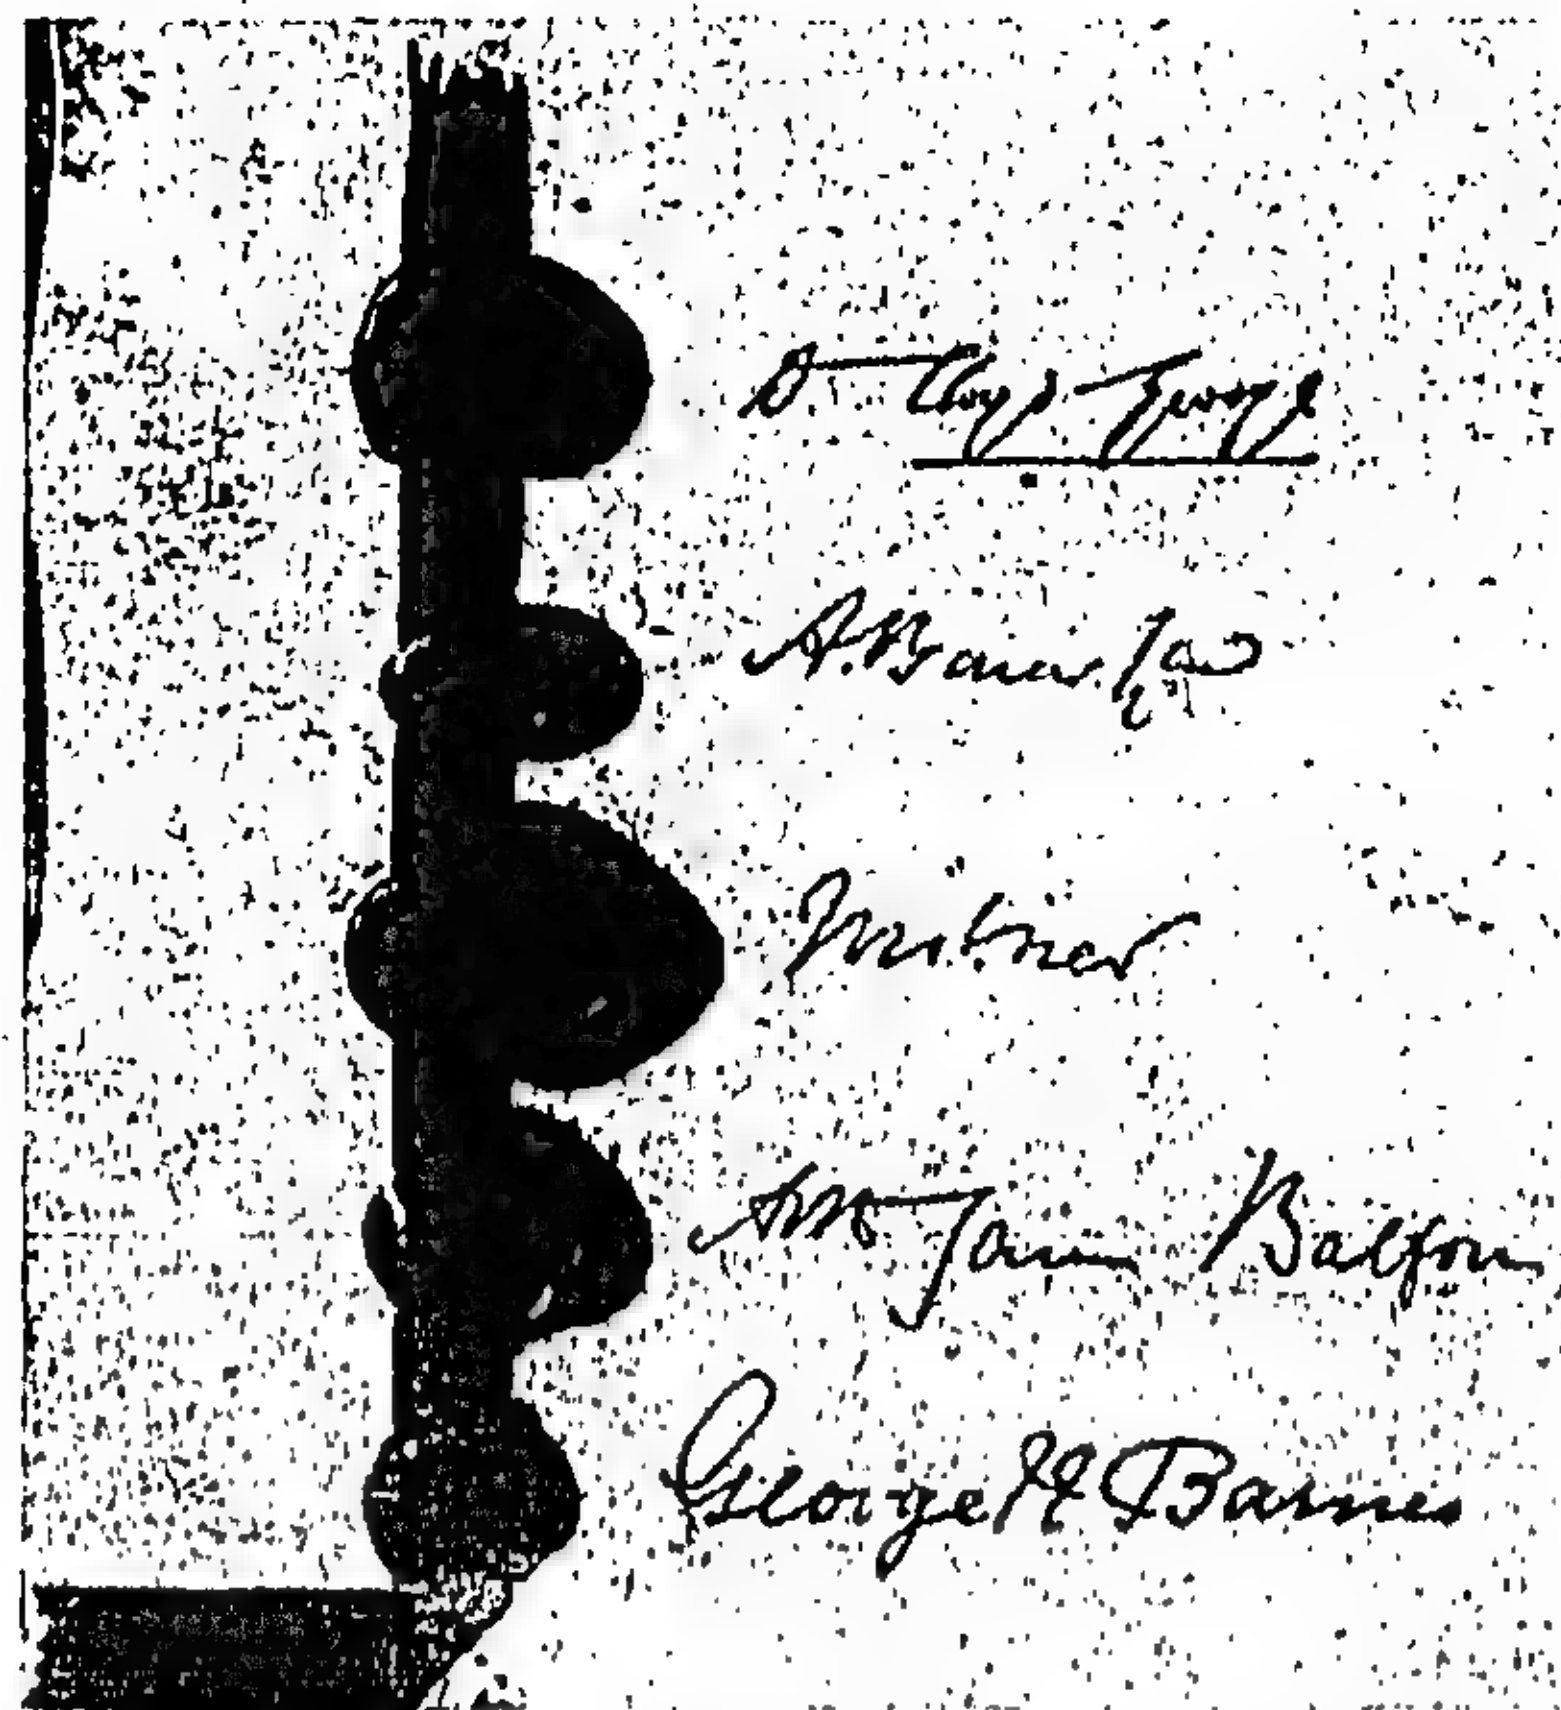 D Lloyd George
A. Bonar Law
Milner
Arthur James Balfour
George N Barnes